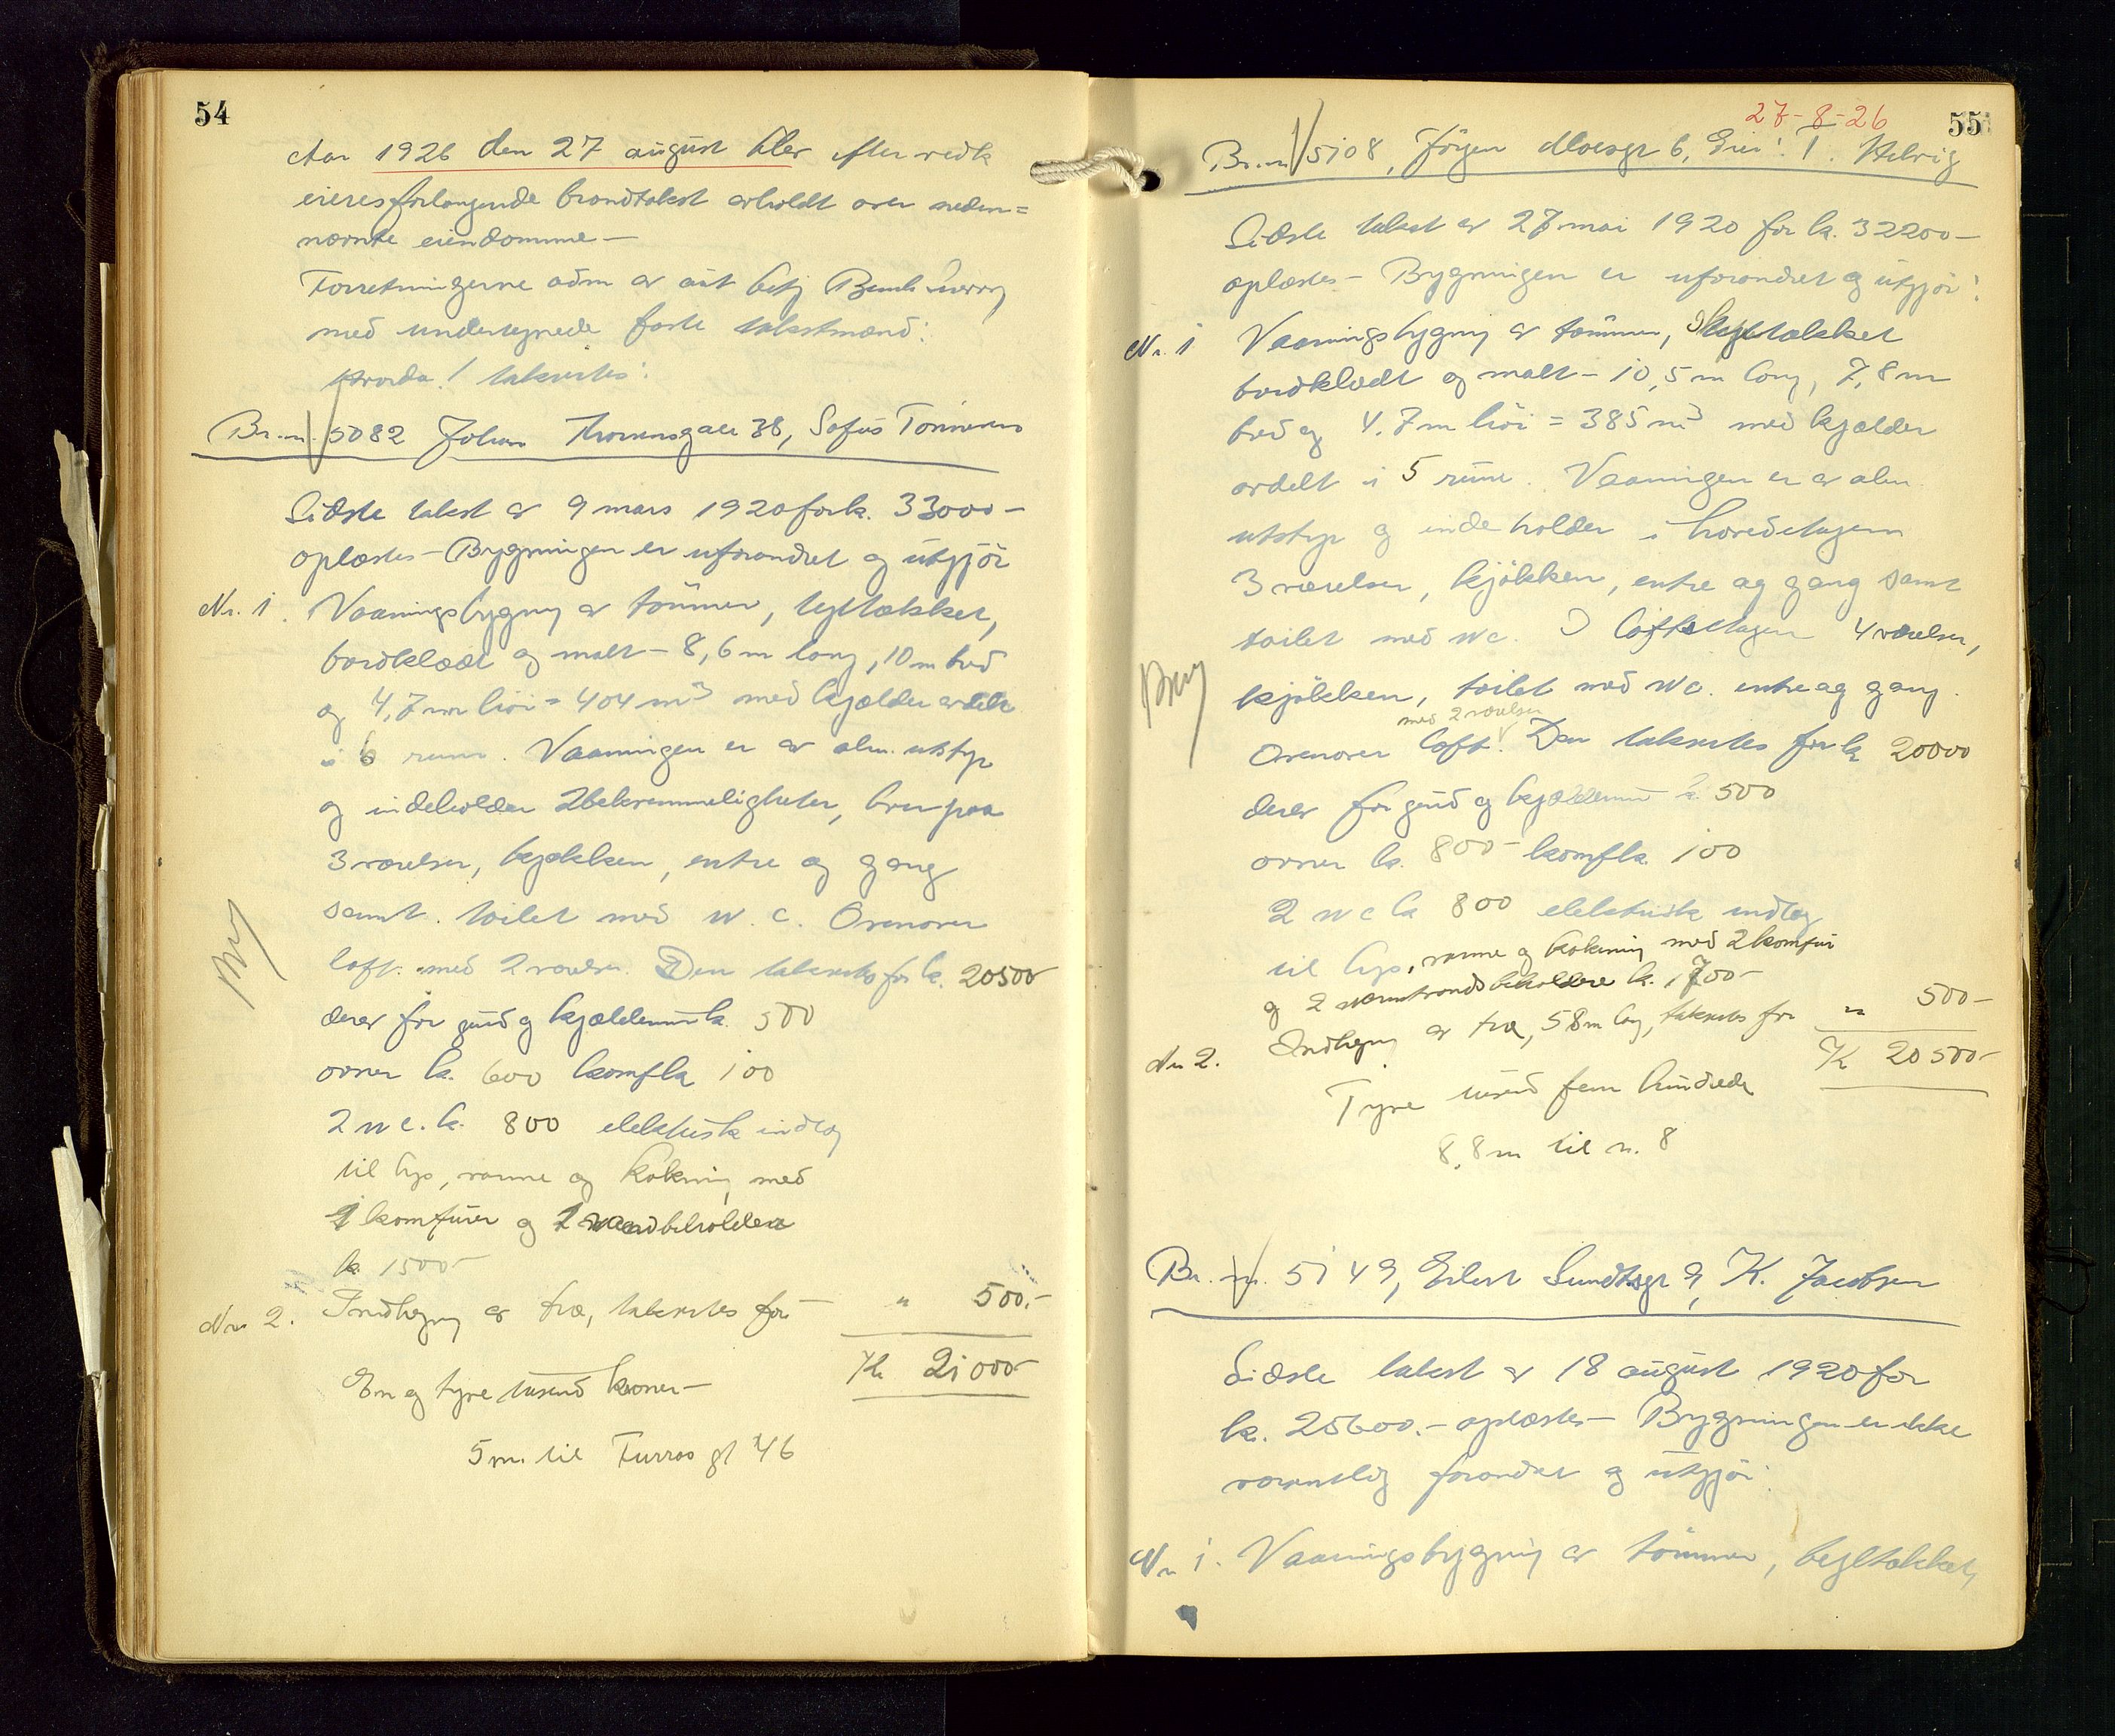 54
Aar 1926 den 27 august blev efter vedk
eieres forlangende brandtakst avholdt over neden=
nævnte eiendomme —
Forretningerne adm av aut betj
med undertegnede faste takstmænd:
Hvorda! takseres:
Br.nr. 5082 Johan Thomsgate 38, Sofus Tönnesen
Sidste takst av 9 mars 1920 for k. 33000 –
oplæstes – Bygningen er uforandret og utgjör
Nr. 1. Vaaningsbygning av tömmer, tegltækket,
bordklædt og malt – 8,6 m lang, 10 m bred
og 4,7 m höi = 404 m³ med kjælder avdelt
i 6 rum. Vaaningen er av alm. utstyr
og indeholder 2 bekvemmeligheter, hver paa
3 værelser, kjøkken, entre og gang
samt. toilet med w.c. Ovenover
loft. med 2 værelser. Den takseres for k. 20500
derav for grund og kjældermur k. 500
ovner k. 600 komf k 100
2 wc. k. 800 elektrisk indlæg
til lys, varme og kokning med
2 komfurer og 2 vandbeholdere
k 1500 –
Nr. 2. Indhegning av træ, takseres for – " 500.–
Kr 21000 –
En og tyve tusend kroner –
5 m. til Furras gt 46
Bry
27-8-26
55
Br.nr 5108, Jörgen Moesgt 6, Eier: T. Helvig
Sidste takst av 27 mai 1920 for k. 32200 –
oplæstes – Bygningen er uforandret og utgjör:
Nr. 1 Vaaningsbygning av tömmer, tegltækket
bordklædt og malt – 10,5 m lang, 7,8 m
bred og 4.7 m höi = 385 m³ med kjælder
avdelt i 5 rum. Vaaningen er av alm.
utstyr og indeholder i hovedetagen
3 værelser, kjökken, entre og gang samt
toilet med wc. I loftsetagen 4 værelser,
kjökken, toilet med wc. entre og gang.
med 2 værelser
Ovenover loft. Den takseres for k 20000
derav for grund og kjældermur k. 500
ovner k. 800 – komf k. 100
2 wc k 800 elektrisk indlæg
til lys, varme og kokning med 2 komfur
og 2 varmtvandsbeholdere k. 1700 –
Nr 2. Indhegning av træ, 58 m lang, takseres for " 500 –
Kr 20500 –
Tyve tusend fem hundrede
8,8 m til nr. 8
Bry
Br. nr. 5149, Eilert Sundtsgt 9, K. Jacobsen
Sidste takst av 18 august 1920 for
k. 25600.– oplæstes – Bygningen er ikke
væsentlig forandret og utgjör:
Nr 1. Vaaningsbygning av tömmer, tegltækket,